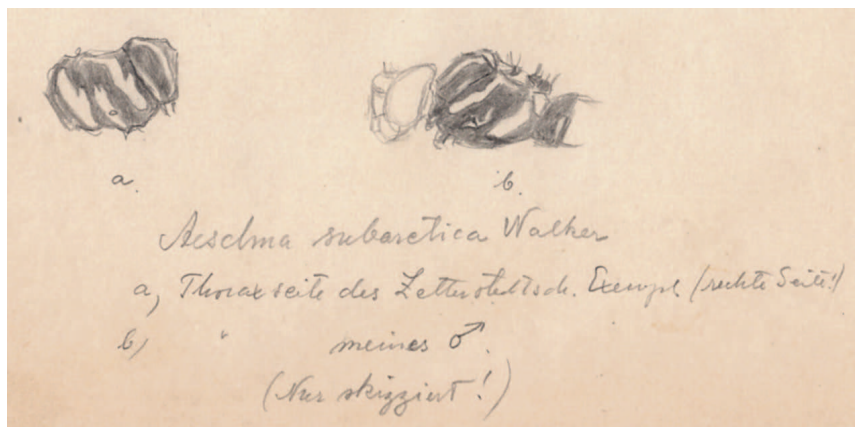 a. b.
Aeschna subarctica Walker
a, Thoraxseite des Zetterstedtsch. Exempl (rechte Seite!)
b, " meines ♂.
(Nur skizziert!)